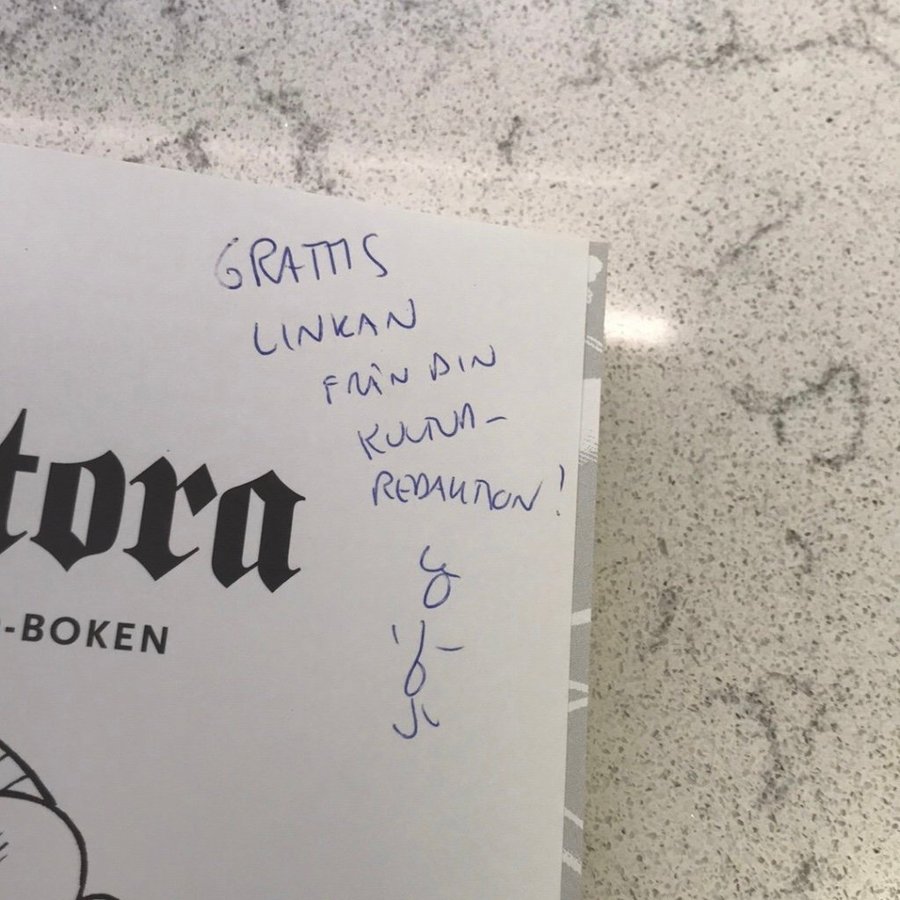 GRATTIS
LINKAN
FRÅN DIN
KULTUR-
REDAKTION!
tora
-BOKEN